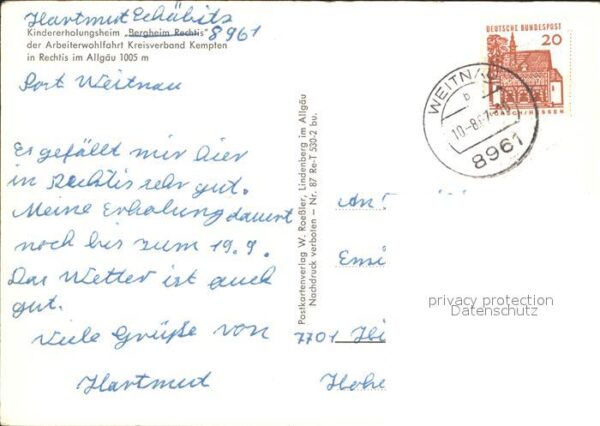 Hartmut Schäbitz
Kindererholungsheim „Bergheim Rechtis“ 8961
der Arbeiterwohlfahrt Kreisverband Kempten
in Rechtis im Allgäu 1005 m
Post Weitnau
Es gefällt mir hier
in Rechtis sehr gut.
Meine Erholung dauert
noch bis zum 19.9.
Das Wetter ist auch
gut.
Viele Grüße von
Hartmut
Postkartenverlag W. Roeßler, Lindenberg im Allgäu
Nachdruck verboten – Nr. 87 Re-T 530-2 bu.
DEUTSCHE BUNDESPOST
20
LORSCH/HESSEN
WEITNAU
b
8961
An
Emi
7701 Hi
Hohe
privacy protection
Datenschutz